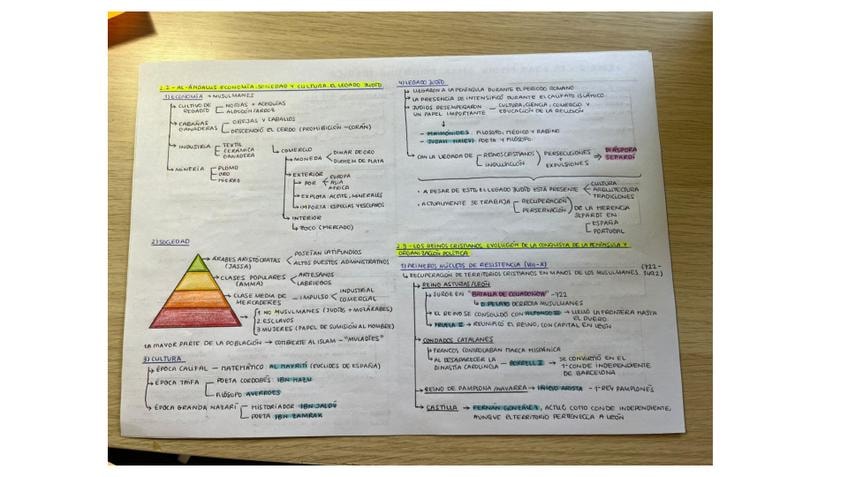 2.2 - AL-ÁNDALUS: ECONOMÍA, SOCIEDAD Y CULTURA. EL LEGADO JUDÍO.
1) ECONOMÍA → MUSULMANES
CULTIVO DE REGADÍO
NORIAS + ACEQUIAS
ALGODÓN/ARROZ
CABAÑAS GANADERAS
OBEJAS Y CABALLOS
DESCENDIÓ EL CERDO (PROHIBICIÓN - CORÁN)
INDUSTRIA
TEXTIL
CERÁMICA
GANADERA
MINERÍA
PLOMO
ORO
HIERRO
COMERCIO
MONEDA
DINAR DE ORO
DIRHEM DE PLATA
EXTERIOR
POR
EUROPA
ASIA
ÁFRICA
EXPLOTA: ACEITE, MINERALES
IMPORTA: ESPECIAS Y ESCLAVOS
INTERIOR
ZOCO (MERCADO)
2) SOCIEDAD
ÁRABES ARISTÓCRATAS (JASSA)
POSEÍAN LATIFUNDIOS
ALTOS PUESTOS ADMINISTRATIVOS
CLASES POPULARES (AMMA)
ARTESANOS
LABRIEGOS
CLASE MEDIA DE MERCADERES
IMPULSO
INDUSTRIAL
COMERCIAL
1 NO MUSULMANES (JUDÍOS + MOZÁRABES)
2 ESCLAVOS
3 MUJERES (PAPEL DE SUMISIÓN AL HOMBRE)
LA MAYOR PARTE DE LA POBLACIÓN → CONVIERTE AL ISLAM - "MULADÍES"
3) CULTURA
ÉPOCA CALIFAL - MATEMÁTICO AL MAYRITI (EUCLIDES DE ESPAÑA)
ÉPOCA TAIFA
POETA CORDOBÉS: IBN HAZM
FILÓSOFO AVERROES
ÉPOCA GRANADA NAZARÍ
HISTORIADOR IBN JALDÚN
POETA IBN ZAMRAK
4) LEGADO JUDÍO
LLEGARON A LA PENÍNSULA DURANTE EL PERIODO ROMANO
LA PRESENCIA SE INTENSIFICÓ DURANTE EL CALIFATO ISLÁMICO
JUDÍOS DESEMPEÑARON UN PAPEL IMPORTANTE
CULTURA, CIENCIA, COMERCIO Y EDUCACIÓN DE LA RELIGIÓN
- MAIMÓNIDES: FILÓSOFO, MÉDICO Y RABINO
- JUDAH HALEVI: POETA Y FILÓSOFO
CON LA LLEGADA DE
REINOS CRISTIANOS
INQUISICIÓN
PERSECUCIONES + EXPULSIONES
DIÁSPORA SEFARDÍ
• A PESAR DE ESTO, EL LEGADO JUDÍO ESTÁ PRESENTE
CULTURA
ARQUITECTURA
TRADICIONES
• ACTUALMENTE SE TRABAJA
RECUPERACIÓN
PERSERVACIÓN
DE LA HERENCIA SEFARDÍ EN
ESPAÑA
PORTUGAL
2.3 - LOS REINOS CRISTIANOS. EVOLUCIÓN DE LA CONQUISTA DE LA PENÍNSULA Y ORGANIZACIÓN POLÍTICA
1) PRIMEROS NÚCLEOS DE RESISTENCIA (VIII-X)
RECUPERACIÓN DE TERRITORIOS CRISTIANOS EN MANOS DE LOS MUSULMANES.
REINO ASTURIAS/LEÓN
SURGE EN "BATALLA DE COVADONGA" - 722
D. PELAYO DERROTA MUSULMANES
EL REINO SE CONSOLIDÓ CON ALFONSO III → LLEVÓ LA FRONTERA HASTA EL DUERO.
FRUELA II → REUNIFICÓ EL REINO, CON CAPITAL EN LEÓN
CONDADOS CATALANES
FRANCOS CONTROLABAN MARCA HISPÁNICA
AL DESAPARECER LA DINASTÍA CAROLINGIA - BORRELL II → SE CONVIRTIÓ EN EL 1º CONDE INDEPENDIENTE DE BARCELONA
REINO DE PAMPLONA/NAVARRA → ÍÑIGO ARISTA - 1º REY PAMPLONÉS
CASTILLA → FERNÁN GONZÁLEZ, ACTUÓ COMO CONDE INDEPENDIENTE, AUNQUE EL TERRITORIO PERTENECÍA A LEÓN